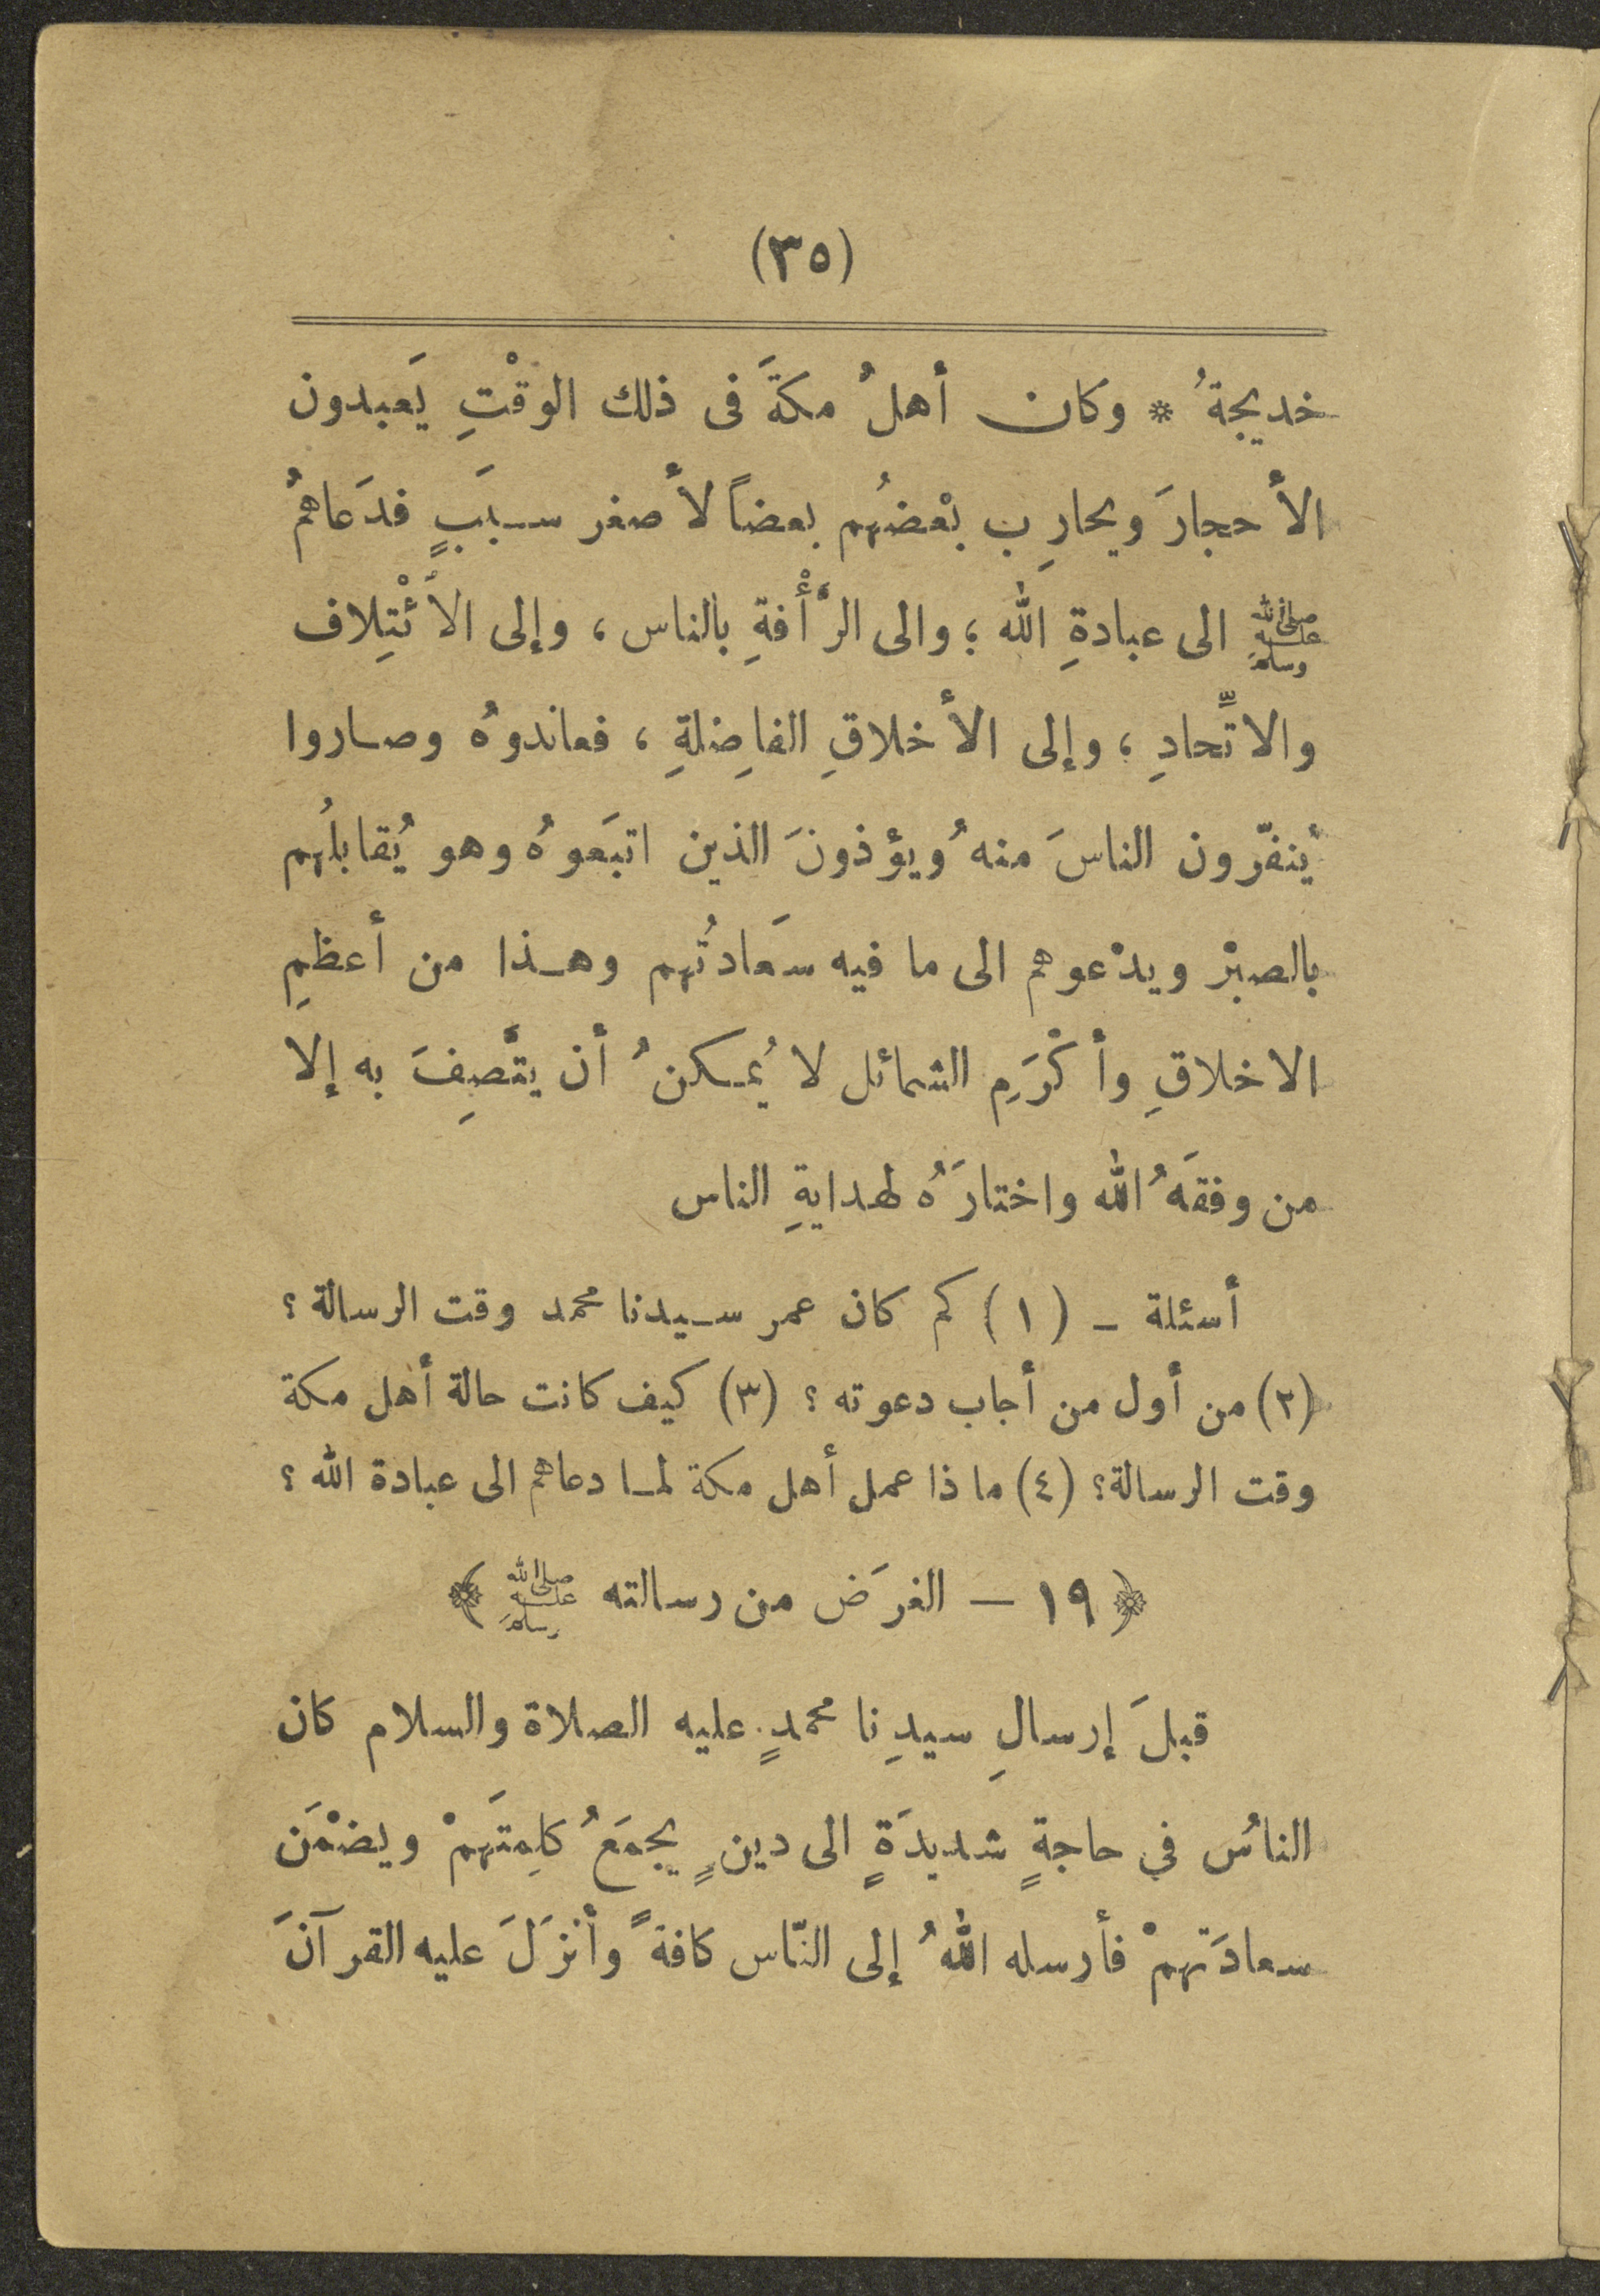 (٣٥)
خديجةُ * وكان أهلُ مكةَ فى ذلك الوقْتِ يَعبدون
الأحجارَ ويحارِب بعْضُهم بعضاً لأصغر سبَبٍ فدَعاهمُ
ﷺ الى عبادةِ الله ؛ والى الرَّأْفةِ بالناس ، وإلى الأئْتِلاف
والاتِّحادِ ؛ وإلى الأخلاقِ الفاضِلةِ ، فعاندوهُ وصاروا
يُنفّرون الناسَ منهُ ويؤذونَ الذين اتبَعوهُ وهو يُقابلُهم
بالصبْر ويدْعوهم الى ما فيه سعَادتُهم وهذا من أعظمِ
الاخلاقِ وأكْرَمِ الشمائل لا يُمكنُ أن يتَّصِفَ به إلا
من وفقَهُ الله واختارَهُ لهدايةِ الناس
أسئلة – (١) كم كان عمر سيدنا محمد وقت الرسالة ؟
(٢) من أول من أجاب دعوته ؟ (٣) كيف كانت حالة أهل مكة
وقت الرسالة؟ (٤) ماذا عمل أهل مكة لما دعاهم الى عبادة الله ؟
﴿ ١٩ — الغرَض من رسالته ﷺ ﴾
قبلَ إرسالِ سيدِنا محمدٍ عليه الصلاة والسلام كان
الناسُ في حاجةٍ شديدَةٍ الى دينٍ يجمَعُ كلِمتَهمْ ويضْمَن
سعادَتهمْ فأرسله اللهُ إلى النّاس كافةً وأنزَلَ عليه القرآنَ